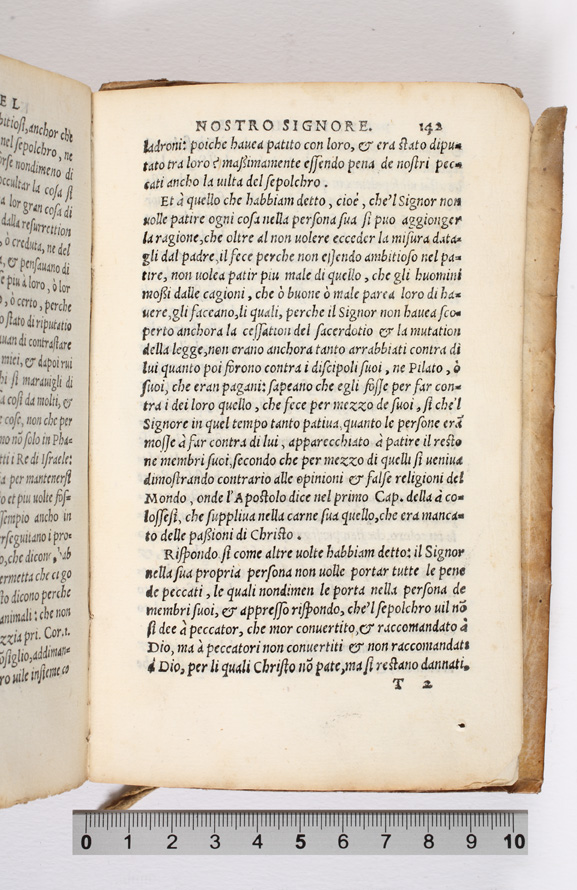 EL
bitiosi, anchor che
nel sepolchro, ne
nondimeno di
occultar la cosa si
a lor gran cosa di
dalla resurrettion
ò creduta, ne del
a, & pensauano di
se piu à loro, ò lor
o, ò certo, perche
stato di riputatio
uan di contrastare
miei, & dapoi rui
hi si marauigli di
a cosi da molti, &
e cose, non che per
mo nõ solo in Pha-
tti i Re di Israele:
ia per mantenersi
o et piu uolte fos-
sempio ancho in
rseguitano i pro-
o, che dicon,
ermetta che ci go
sto dicono perche
animali: che non
zzia pri. Cor.1.
õsiglio, addiman-
ro uile insieme co
NOSTRO SIGNORE. 142
ladroni: poiche hauea patito con loro, & era stato dipu-
tato tra loro è maßimamente essendo pena de nostri pec-
cati ancho la uilta del sepolchro.
Et à quello che habbiam detto, cioè, che'l Signor non
uolle patire ogni cosa nella persona sua si puo aggionger
la ragione, che oltre al non uolere ecceder la misura data-
gli dal padre, il fece perche non essendo ambitioso nel pa-
tire, non uolea patir piu male di quello, che gli huomini
moßi dalle cagioni, che ò buone ò male parea loro di ha-
uere, gli faceano, li quali, perche il Signor non hauea sco-
perto anchora la cessation del sacerdotio & la mutation
della legge, non erano anchora tanto arrabbiati contra di
lui quanto poi forono contra i discipoli suoi, ne Pilato, ò
suoi, che eran pagani: sapeano che egli fosse per far con-
tra i dei loro quello, che fece per mezzo de suoi, si che'l
Signore in quel tempo tanto patiua, quanto le persone erã
mosse à far contra di lui, apparecchiato à patire il resto
ne membri suoi, secondo che per mezzo de quelli si ueniua
dimostrando contrario alle opinioni & false religioni del
Mondo, onde l'Apostolo dice nel primo Cap. della à co-
lossesi, che suppliua nella carne sua quello, che era manca-
to delle paßioni di Christo.
Rispondo si come altre uolte habbiam detto: il Signor
nella sua propria persona non uolle portar tutte le pene
de peccati, le quali nondimen le porta nella persona de
membri suoi, & appresso rispondo, che'l sepolchro uil nõ
si dee à peccator, che mor conuertito, & raccomandato à
Dio, ma à peccatori non conuertiti & non raccomandati
à Dio, per li quali Christo nõ pate, ma si restano dannati.
T 2
0 1 2 3 4 5 6 7 8 9 10